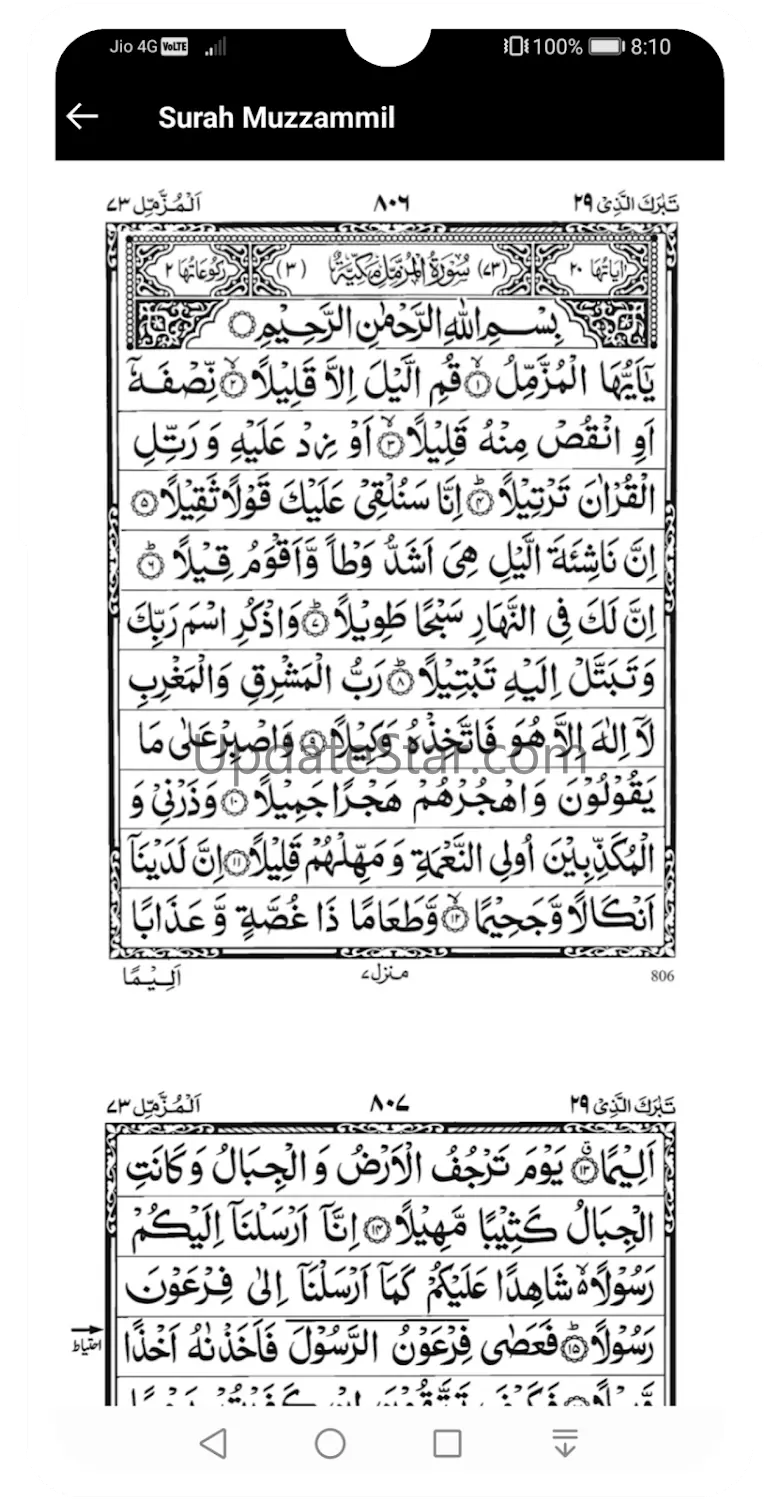 Jio 4G VoLTE 100% 8:10
Surah Muzzammil
تَبٰرَكَ الَّذِیْ ۲۹ ۸۰۶ اَلْمُزَّمِّل ۷۳
اٰیَاتُهَا ۲۰ (۷۳) سُوْرَةُ الْمُزَّمِّلِ مَكِّیَّةٌ (۳) رُكُوْعَاتُهَا ۲
بِسْمِ اللّٰهِ الرَّحْمٰنِ الرَّحِیْمِ
یٰۤاَیُّهَا الْمُزَّمِّلُ ۙ﴿۱﴾ قُمِ الَّیْلَ اِلَّا قَلِیْلًا ۙ﴿۲﴾ نِّصْفَهٗۤ
اَوِ انْقُصْ مِنْهُ قَلِیْلًا ۙ﴿۳﴾ اَوْ زِدْ عَلَیْهِ وَ رَتِّلِ
الْقُرْاٰنَ تَرْتِیْلًا ؕ﴿۴﴾ اِنَّا سَنُلْقِیْ عَلَیْكَ قَوْلًا ثَقِیْلًا ﴿۵﴾
اِنَّ نَاشِئَةَ الَّیْلِ هِیَ اَشَدُّ وَطْاً وَّاَقْوَمُ قِیْلًا ؕ﴿۶﴾
اِنَّ لَكَ فِی النَّهَارِ سَبْحًا طَوِیْلًا ؕ﴿۷﴾ وَاذْكُرِ اسْمَ رَبِّكَ
وَتَبَتَّلْ اِلَیْهِ تَبْتِیْلًا ؕ﴿۸﴾ رَبُّ الْمَشْرِقِ وَالْمَغْرِبِ
لَاۤ اِلٰهَ اِلَّا هُوَ فَاتَّخِذْهُ وَكِیْلًا ﴿۹﴾ وَاصْبِرْ عَلٰی مَا
UpdateStar.com
یَقُوْلُوْنَ وَاهْجُرْهُمْ هَجْرًا جَمِیْلًا ﴿۱۰﴾ وَذَرْنِیْ وَ
الْمُكَذِّبِیْنَ اُولِی النَّعْمَةِ وَ مَهِّلْهُمْ قَلِیْلًا ﴿۱۱﴾ اِنَّ لَدَیْنَاۤ
اَنْكَالًا وَّجَحِیْمًا ۙ﴿۱۲﴾ وَّطَعَامًا ذَا غُصَّةٍ وَّ عَذَابًا
806 منزل۷ اَلِیْمًا
تَبٰرَكَ الَّذِیْ ۲۹ ۸۰۷ اَلْمُزَّمِّل ۷۳
اَلِیْمًا ۗ﴿۱۳﴾ یَوْمَ تَرْجُفُ الْاَرْضُ وَ الْجِبَالُ وَ كَانَتِ
الْجِبَالُ كَثِیْبًا مَّهِیْلًا ﴿۱۴﴾ اِنَّاۤ اَرْسَلْنَاۤ اِلَیْكُمْ
رَسُوْلًا ۬ۙ شَاهِدًا عَلَیْكُمْ كَمَاۤ اَرْسَلْنَاۤ اِلٰی فِرْعَوْنَ
احتیاط
رَسُوْلًا ؕ﴿۱۵﴾ فَعَصٰی فِرْعَوْنُ الرَّسُوْلَ فَاَخَذْنٰهُ اَخْذًا